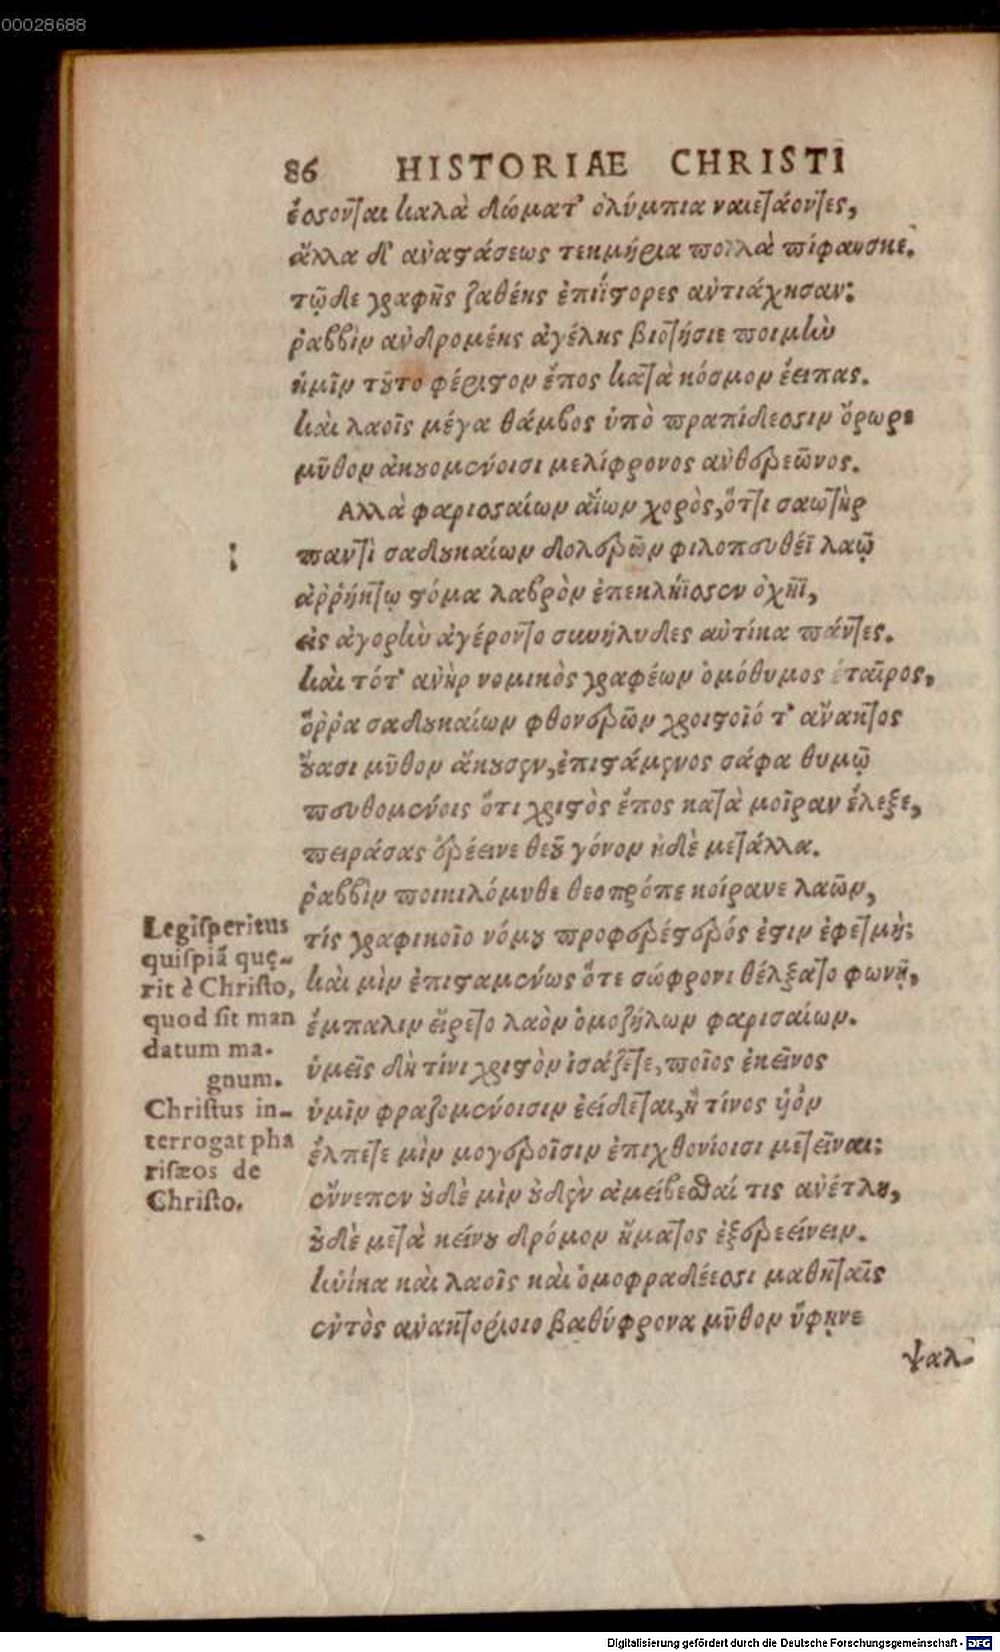 00028688
86 HISTORIAE CHRISTI
ἔσσονται καλὰ δώματ' ὀλύμπια ναιετάοντες,
ἄλλα δ' ἀναστάσεως τεκμήρια πολλὰ πίφαυσκε.
τῷδε γραφῆς ζαθέης ἐπιΐστορες ἀντιάχησαν:
ῥαββὶν ἀνδρομέης ἀγέλης βιοτήσιε ποιμὴν
ἡμῖν τοῦτο φέριστον ἔπος κατὰ κόσμον ἔειπας.
καὶ λαοῖς μέγα θάμβος ὑπὸ πραπίδεσσιν ὄρωρε
μῦθον ἀκουομένοισι μελίφρονος ἀνθερεῶνος.
Αλλὰ φαρισσαίων ἀΐων χορὸς, ὅττι σαωτὴρ
παντὶ σαδουκαίων δολερῶν φιλοπευθέϊ λαῷ
ἀῤῥήκτῳ στόμα λαβρὸν ἐπεκλήϊσσεν ὀχῆϊ,
εἰς ἀγορὴν ἀγέροντο συνήλυδες αὐτίκα πάντες.
καὶ τότ' ἀνὴρ νομικὸς γραφέων ὁμόθυμος ἑταῖρος,
ὅῤῥα σαδουκαίων φθονερῶν χριστοῖό τ' ἄνακτος
οὔασι μῦθον ἄκουσεν, ἐπιστάμενος σάφα θυμῷ
πευθομένοις ὅτι χριστὸς ἔπος κατὰ μοῖραν ἔλεξε,
πειράσας ἐρέεινε θεοῦ γόνον ἠδὲ μετάλλα.
ῥαββὶν ποικιλόμυθε θεοπρόπε κοίρανε λαῶν,
τίς γραφικοῖο νόμου προφερέστερός ἐστιν ἐφετμή;
καὶ μὶν ἐπισταμένως ὅτε σώφρονι θέλξατο φωνῇ,
ἔμπαλιν εἴρετο λαὸν ὁμοζήλων φαρισαίων.
ὑμεῖς δὴ τίνι χριστὸν ἰσάζετε, ποῖος ἐκεῖνος
ὑμῖν φραζομένοισιν ἐείδεται, ἢ τίνος υἱὸν
ἔλπετε μὶν μογεροῖσιν ἐπιχθονίοισι μετεῖναι;
οὔνεπεν οὐδὲ μὶν οὐδὲν ἀμείβεσθαί τις ἀνέτλη,
οὐδὲ μετὰ κείνου δρόμον ἤματος ἐξερεείνειν.
ἡνίκα καὶ λαοῖς καὶ ὁμοφραδέεσσι μαθηταῖς
ἐντὸς ἀνακτορίοιο βαθύφρονα μῦθον ὕφηνε
ψαλ-
Legisperitus
quispiã quę-
rit è Christo,
quod sit man
datum ma-
gnum.
Christus in-
terrogat pha
risæos de
Christo.
Digitalisierung gefördert durch die Deutsche Forschungsgemeinschaft - DFG